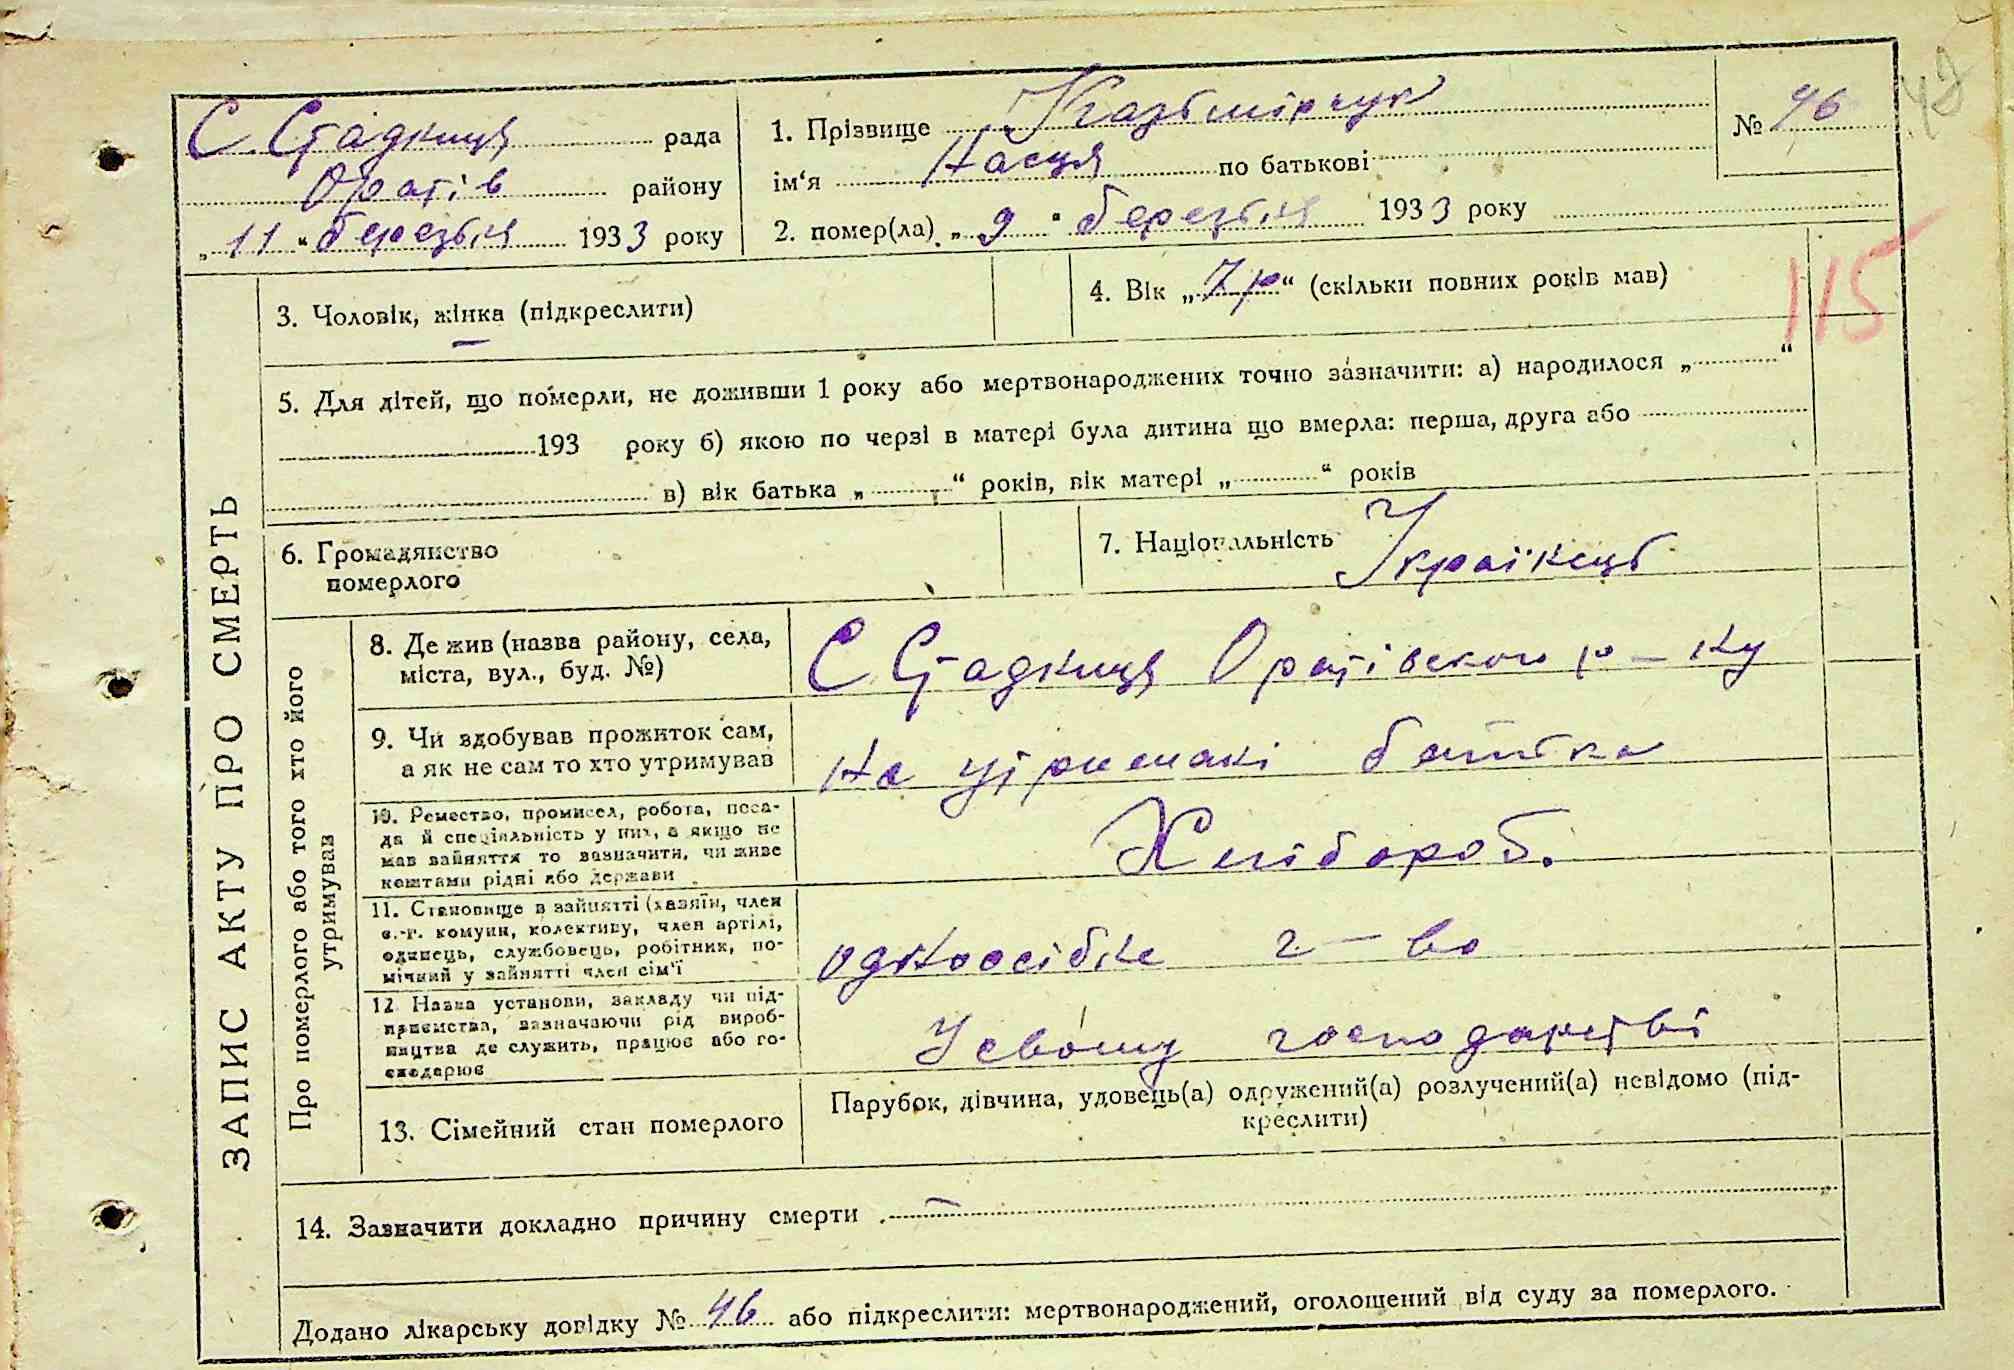 С. Стадниця рада
Оратів району
„ 11 “ березня 1933 року
1. Прізвище Казьмірчук
ім‘я Насця по батькові
2. помер(ла) „ 9 “ березня 1933 року
№ 46
48
115
3. Чоловік, жінка (підкреслити)
4. Вік „ 7 р “ (скільки повних років мав)
5. Для дітей, що померли, не доживши 1 року або мертвонароджених точно зазначити: а) народилося „ “
193 року б) якою по черзі в матері була дитина що вмерла: перша, друга або
в) вік батька „ “ років, вік матері „ “ років
6. Громадянство
померлого
7. Національність Українець
ЗАПИС АКТУ ПРО СМЕРТЬ
Про померлого або того хто його
утримував
8. Де жив (назва району, села,
міста, вул., буд. №)
С Стадниця Оратівского р-ну
9. Чи здобував прожиток сам,
а як не сам то хто утримував
На утриманні батька
10. Ремество, промисел, робота, поса-
да й спеціяльність у них, а якщо не
мав зайняття то зазначити, чи живе
коштами рідні або держави
Хлібороб.
11. Становище в зайнятті (хазяїн, член
с.-г. комуни, колективу, член артілі,
одинець, службовець, робітник, по-
мічний у зайнятті член сім‘ї
одноосібне г-во
12. Назва установи, закладу чи під-
приємства, зазначаючи рід вироб-
ництва де служить, працює або го-
сподарює
У свому господарстві
13. Сімейний стан померлого
Парубок, дівчина, удовець(а) одружений(а) розлучений(а) невідомо (під-
креслити)
14. Зазначити докладно причину смерти —
Додано лікарську довідку № 46 або підкреслити: мертвонароджений, оголошений від суду за померлого.